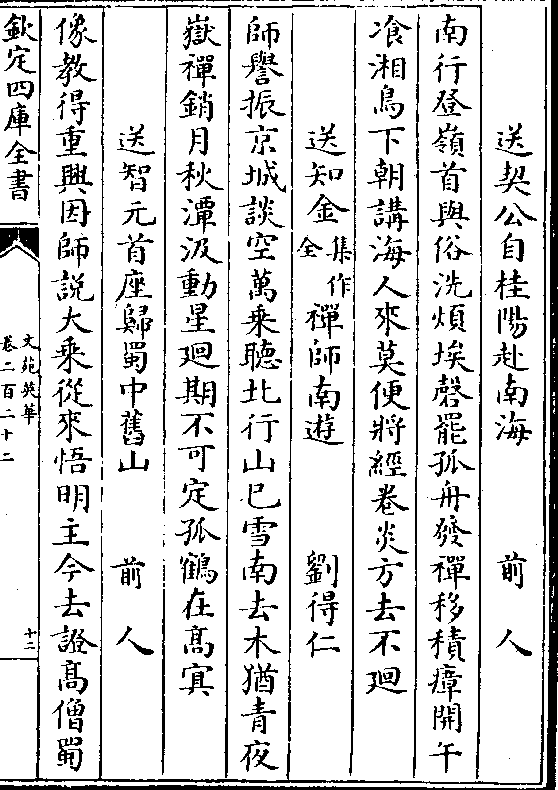 送契公自桂陽赴南海 前人
南行登嶺首與俗洗煩埃磬罷孤舟發禪移積瘴開午
飡湘鳥下朝講海人來莫便將經卷炎方去不廻
送知金集作全禪師南遊 劉得仁
師譽振京城談空萬乗聽北行山巳雪南去木猶青夜
嶽禪銷月秋潭汲動星廻期不可定孤鶴在髙㝠
送智元首座歸蜀中舊山 前人
像教得重興因師説大乗從來悟明主今去證髙僧蜀
欽定四庫全書
文苑英華
卷二百二十二
十二